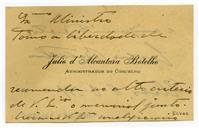 Exmo Ministro
Tomo a liberdade de
Julio d'Alcantara Botelho
Administrador do Concelho
recomendar ao alto criterio
de V. Exa o memorial junto
Elvas